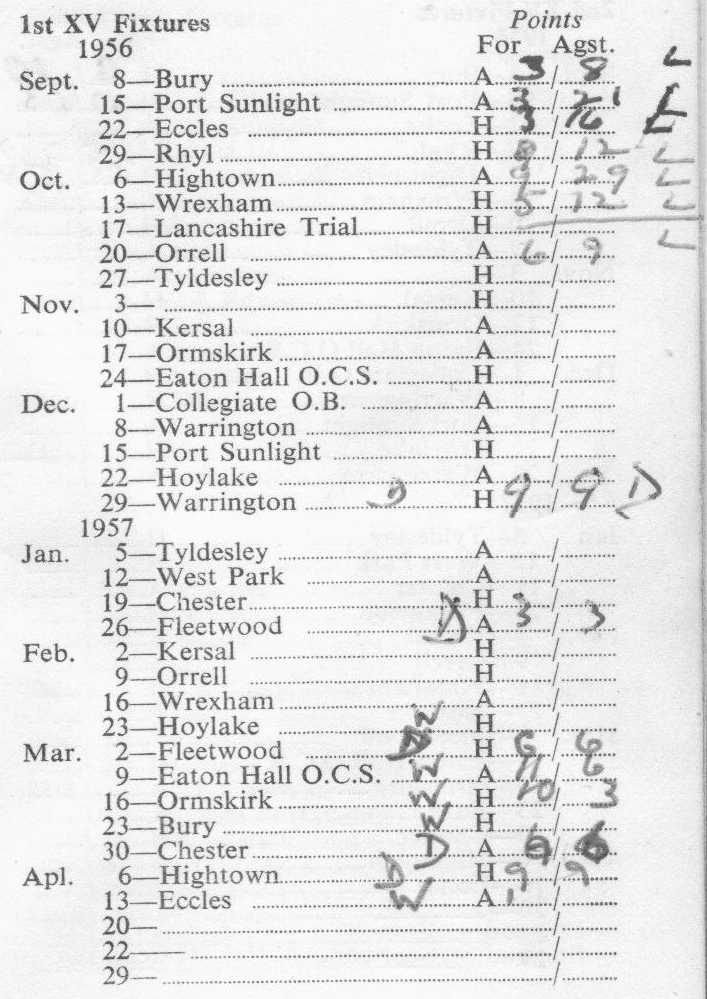 1st XV Fixtures Points
1956 For Agst.
Sept. 8—Bury A 3 / 8 L
15—Port Sunlight A 3 / 21 L
22—Eccles H 3 / 16 L
29—Rhyl H 8 / 12 L
Oct. 6—Hightown A 9 / 29 L
13—Wrexham H 5 / 12 L
17—Lancashire Trial H /
20—Orrell A 6 / 9 L
27—Tyldesley H /
Nov. 3— H /
10—Kersal A /
17—Ormskirk A /
24—Eaton Hall O.C.S. H /
Dec. 1—Collegiate O.B. A /
8—Warrington A /
15—Port Sunlight H /
22—Hoylake A /
29—Warrington D H 9 / 9 D
1957
Jan. 5—Tyldesley A /
12—West Park A /
19—Chester H /
26—Fleetwood D A 3 / 3
Feb. 2—Kersal H /
9—Orrell H /
16—Wrexham A /
23—Hoylake W H /
Mar. 2—Fleetwood D H 6 / 6
9—Eaton Hall O.C.S. W A 11 / 6
16—Ormskirk W H 10 / 3
23—Bury W H /
30—Chester D A 6 / 6
Apl. 6—Hightown D H 9 / 9
13—Eccles W A /
20— /
22— /
29— /